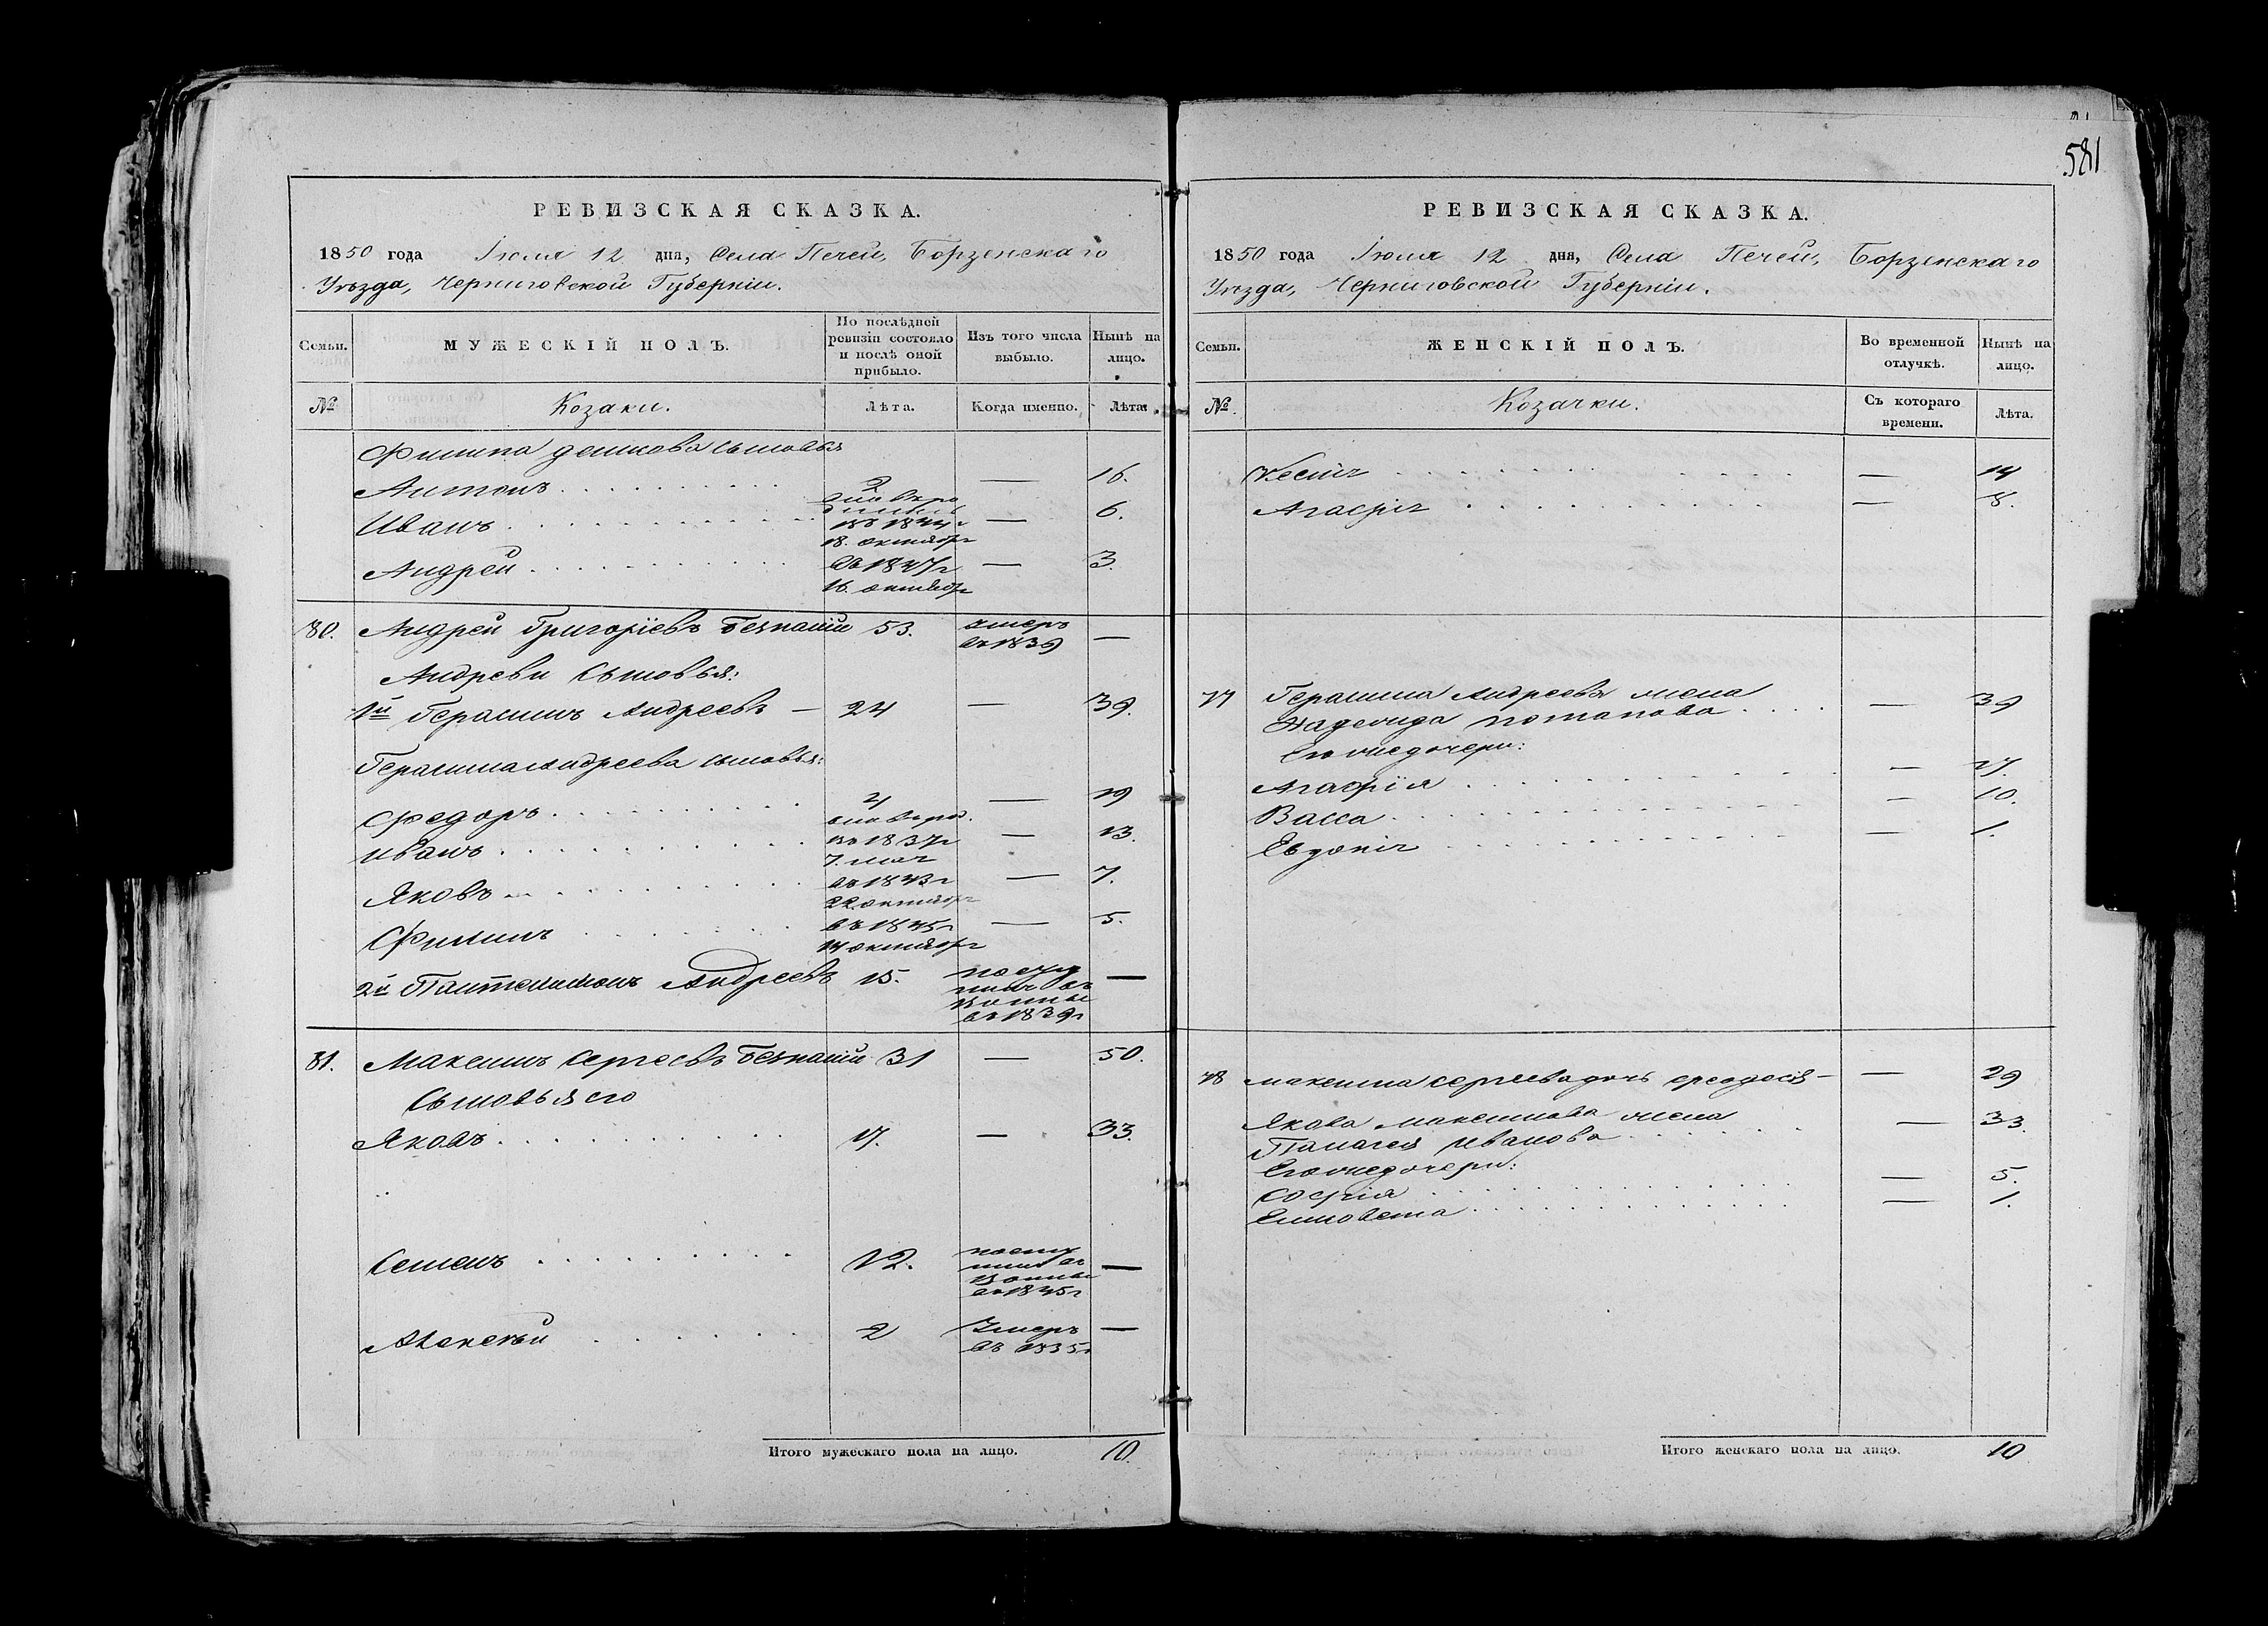 581
РЕВИЗСКАЯ СКАЗКА.
1850 года Іюля 12 дня, Села Печей, Борзенскаго
Уѣзда, Черниговской Губерніи.
Семьи.
МУЖЕСКІЙ ПОЛЪ.
По послѣдней
ревизіи состояло
и послѣ оной
прибыло.
Изъ того числа
выбыло.
Нынѣ на
лицо.
№
Козаки.
Лѣта.
Когда именно.
Лѣта.
сыновья
Антонъ — 16.
Иванъ въ 1844г — 6.
18. октября
Андрей въ 1847г — 3.
16. октября
80. Андрей Григоріевъ 53. умеръ —
въ 1839
Андреви Сыновья:
1й Герасимъ Андреевъ — 24 — 39.
Герасима Андреева сыновья:
Федоръ 4 — 19
Иванъ въ 1837г — 13.
7. мая
Яковъ въ 1843г — 7.
22 октября
Филипъ въ 1845г — 5.
14 октября
2й Пантелимонъ Андреевъ 15. посту —
пилъ въ
въ 1839г
81. Максимъ Сергеевъ 31 — 50.
Сыновья его
Яковъ 17. — 33.
Семенъ 12. посту
пилъ въ —
въ 1845г
Алексѣй 2 Умеръ —
въ 1835г
Итого мужескаго пола на лицо. 10.
РЕВИЗСКАЯ СКАЗКА.
1850 года Іюля 12 дня, Села Печей, Борзенскаго
Уѣзда, Черниговской Губерніи.
Семьи.
ЖЕНСКІЙ ПОЛЪ.
Во временной
отлучкѣ.
Нынѣ на
лицо.
№
Козачки.
Съ котораго
времени.
Лѣта.
—
Агафія — 8.
77 Герасима Андреева жена
Надежда Потапова — 39
Егожедочери:
Агафія — 17.
Васса — 10.
Евдокія — 1.
78 Максима Сергеева дочь Феодосія — — 29
Якова Максимова жена
Пелагея Иванова — 33.
Егожедочери:
Софія — 5.
Елисовета — 1.
Итого женскаго пола на лицо. 10